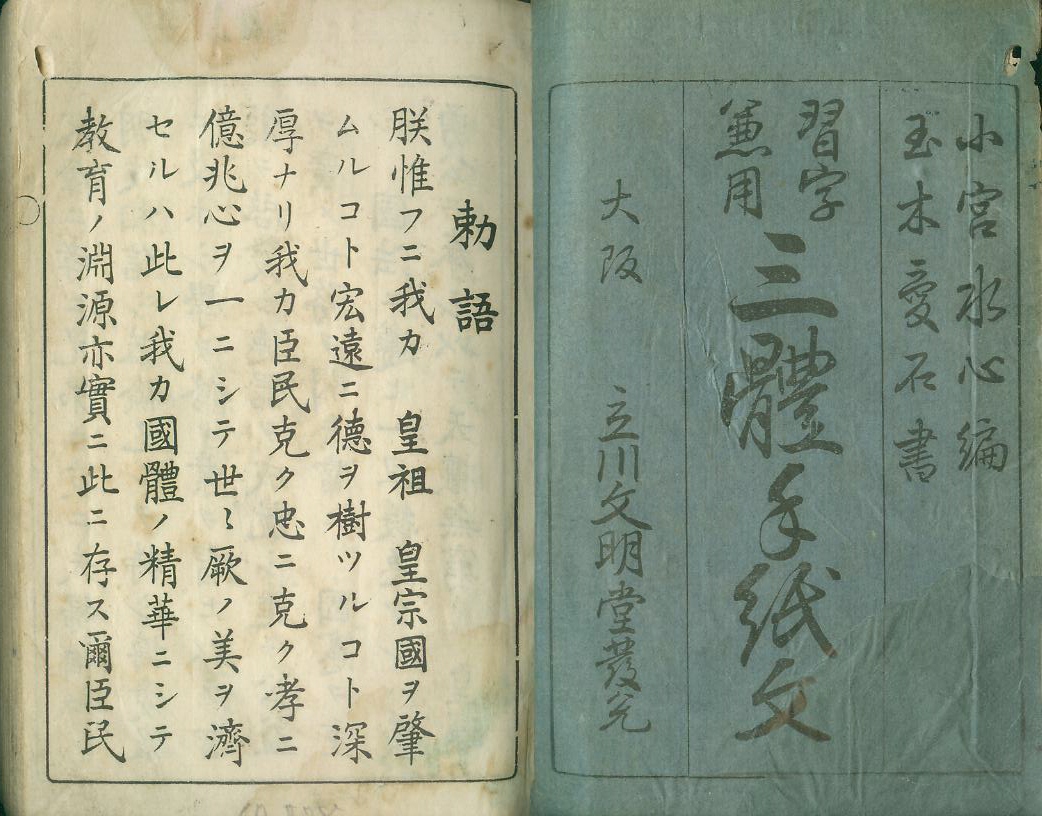 小宮水心編
玉木愛石書
習字
兼用
三體手紙文
大阪 立川文明堂發兌
勅語
朕惟フニ我カ 皇祖 皇宗國ヲ肇
ムルコト宏遠ニ德ヲ樹ツルコト深
厚ナリ我カ臣民克ク忠ニ克ク孝ニ
億兆心ヲ一ニシテ世〻厥ノ美ヲ濟
セルハ此レ我カ國體ノ精華ニシテ
教育ノ淵源亦實ニ此ニ存ス爾臣民